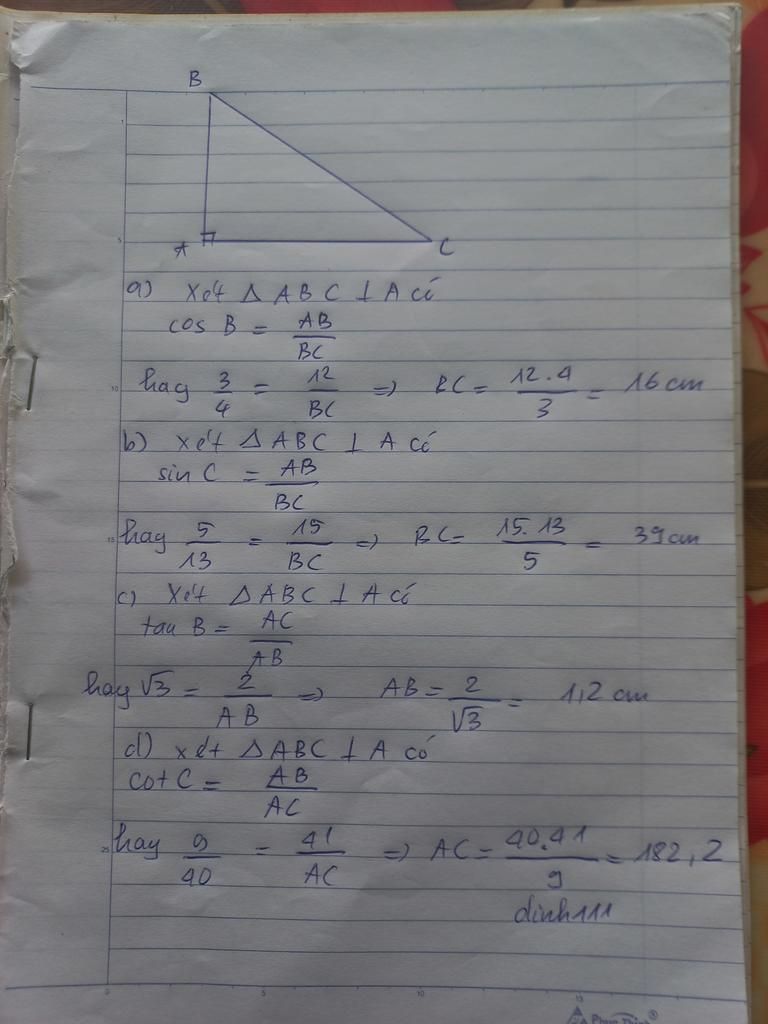 B
A
C
a) Xét Δ ABC ⊥ A có
cos B = AB/BC
hay 3/4 = 12/BC => BC = 12.4/3 = 16 cm
b) xét Δ ABC ⊥ A có
sin C = AB/BC
hay 5/13 = 15/BC => BC = 15.13/5 = 39 cm
c) Xét Δ ABC ⊥ A có
tan B = AC/AB
hay √3 = 2/AB => AB = 2/√3 = 1,2 cm
d) xét Δ ABC ⊥ A có
cot C = AB/AC
hay 9/40 = 41/AC => AC = 40.41/9 = 182,2
dinh111